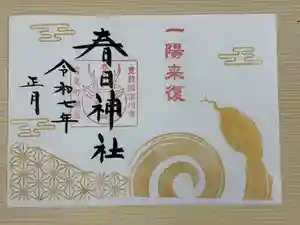 一陽来復
春日神社
令和七年
正月